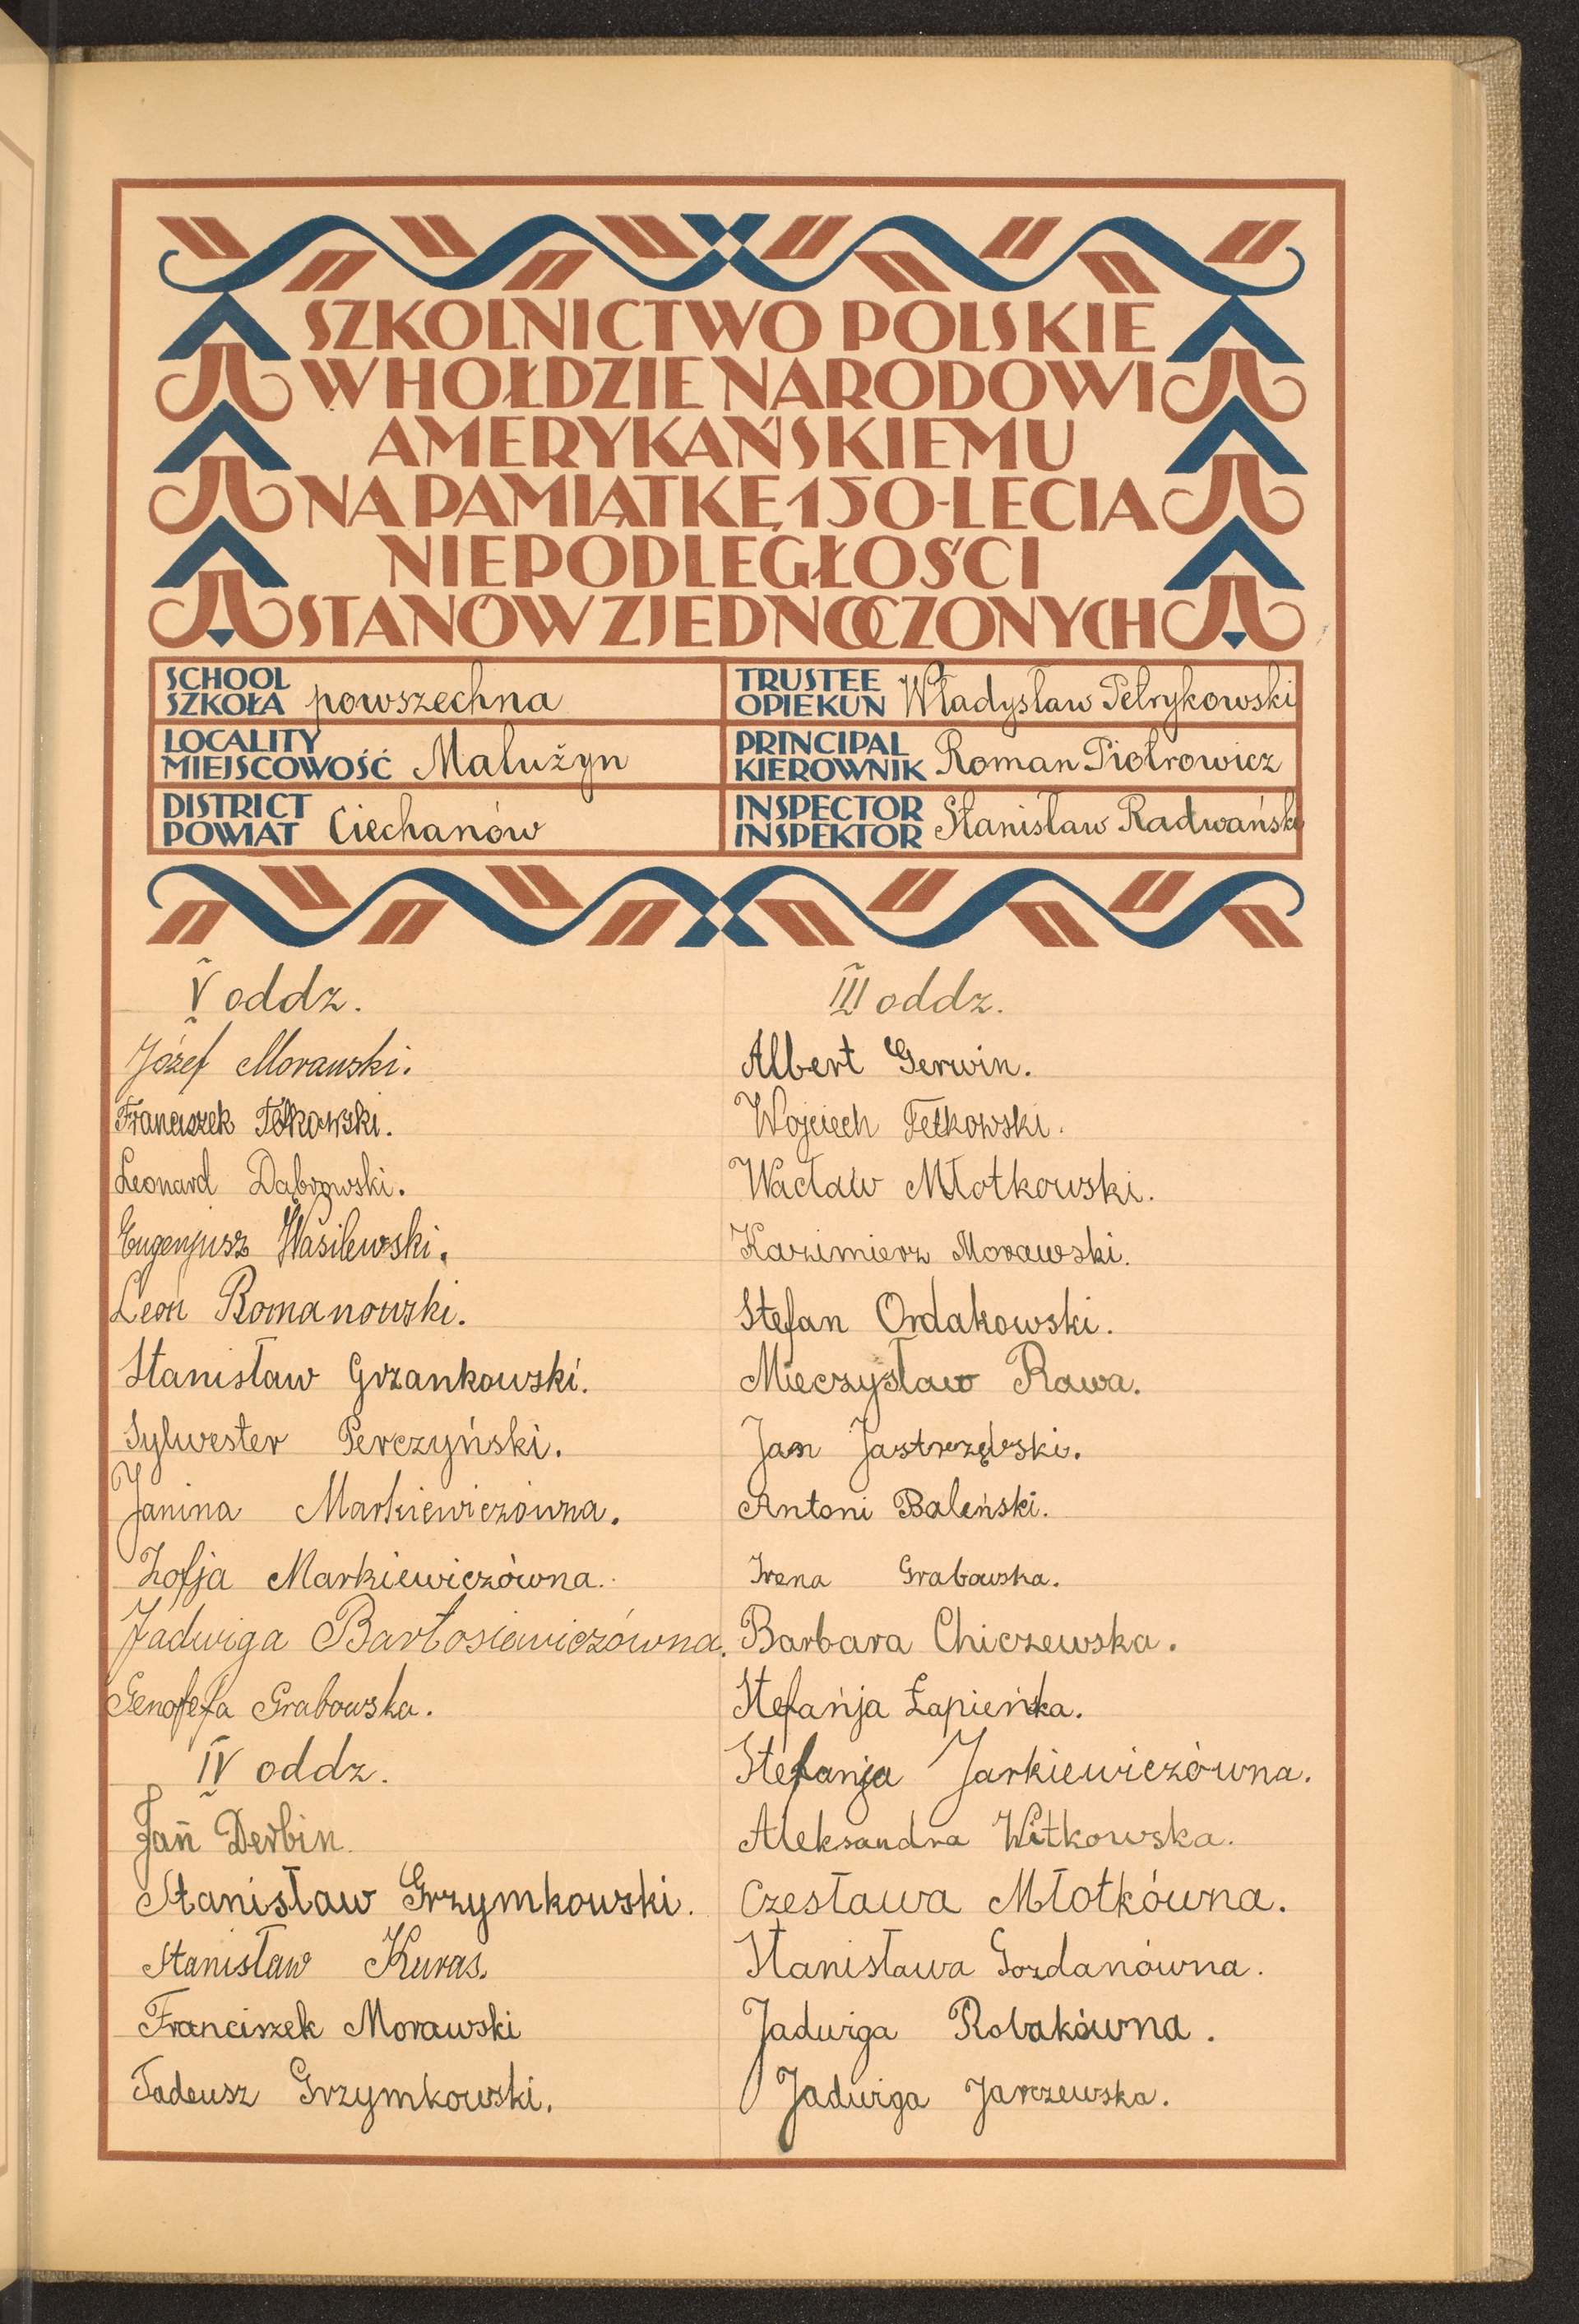 SZKOLNICTWO POLSKIE
W HOŁDZIE NARODOWI
AMERYKAŃSKIEMU
NA PAMIĄTKĘ 150-LECIA
NIEPODLEGŁOŚCI
STANÓW ZJEDNOCZONYCH
SCHOOL
SZKOŁA powszechna
TRUSTEE
OPIEKUN Władysław Petrykowski
LOCALITY
MIEJSCOWOŚĆ Malużyn
PRINCIPAL
KIEROWNIK Roman Piotrowicz
DISTRICT
POWIAT Ciechanów
INSPECTOR
INSPEKTOR Stanisław Radwański
V oddz.
Józef Morawski.
Franciszek Fółkowski.
Leonard Dąbrowski.
Eugenjusz Wasilewski.
Leon Romanowski.
Stanisław Grzankowski.
Sylwester Perczyński.
Janina Markiewiczówna.
Zofja Markiewiczówna.
Jadwiga Bartosiewiczówna.
Genofefa Grabowska.
IV oddz.
Jan Derbin.
Stanisław Grzymkowski.
Stanisław Kuras.
Franciszek Morawski
Tadeusz Grzymkowski.
III oddz.
Albert Gerwin.
Wojciech Fełkowski.
Wacław Młotkowski.
Kazimierz Morawski.
Stefan Ordakowski.
Mieczysław Rawa.
Jan Jastrzębski.
Antoni Baleński.
Irena Grabowska.
Barbara Chiczewska.
Stefanja Łapieńka.
Stefanja Jarkiewiczówna.
Aleksandra Witkowska.
Czesława Młotkówna.
Stanisława Gozdanówna.
Jadwiga Robakówna.
Jadwiga Jarczewska.